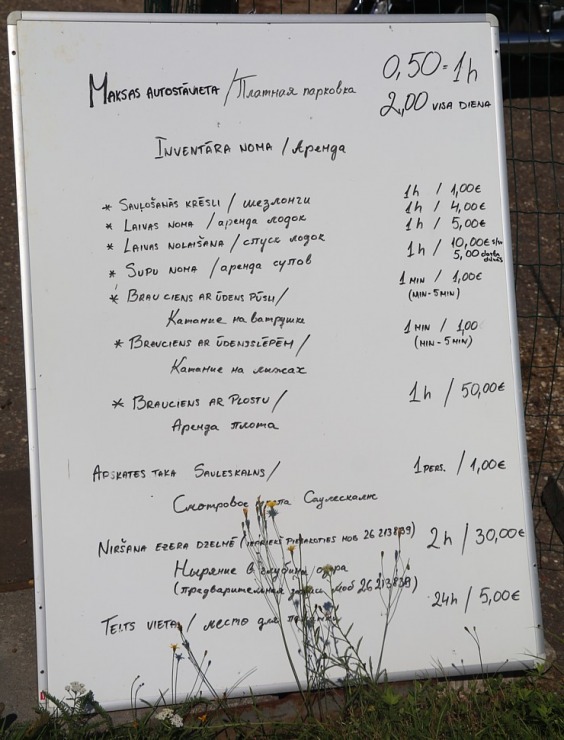 MAKSAS AUTOSTĀVIETA / Платная парковка 0,50 = 1h
2,00 VISA DIENA
INVENTĀRA NOMA / Аренда
* SAUĻOŠANĀS KRĒSLI / шезлонги 1h / 1,00€
* LAIVAS NOMA / аренда лодок 1h / 4,00€
* LAIVAS NOLAIŠANA / спуск лодок 1h / 5,00€
* SUPU NOMA / аренда супов 1h / 10,00€ 5,00
* BRAUCIENS AR ŪDENS PŪSLI / 1 MIN / 1,00€
Катание на ватрушке (MIN-5MIN)
* BRAUCIENS AR ŪDENSSLĒPĒM / 1 MIN / 1,00
Катание на лыжах (MIN-5MIN)
* BRAUCIENS AR PLOSTU / 1h / 50,00€
Аренда плота
APSKATES TAKA SAULESKALNS / 1 PERS. / 1,00€
Смотровое Саулескалнс
NIRŠANA EZERA DZELMĒ (IEPRIEKŠ PIESAKOTIES MOB 26 213839) 2h / 30,00€
Ныряние в глубину озера
(предварительная запись моб 26 213839)
TELTS VIETA / место для палатки 24h / 5,00€